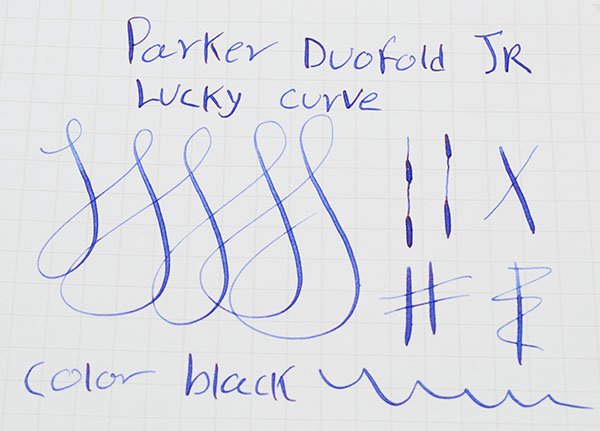 Parker Duofold JR
Lucky curve
color black